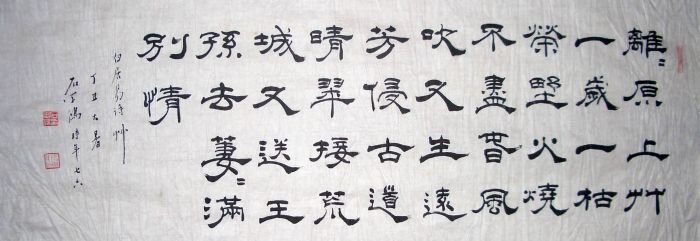 離〻原上艸
一歲一枯
榮野火燒
不盡春風
吹又生遠
芳侵古道
晴翠接荒
城又送王
孫去萋〻滿
別情
白居易詩艸
丁丑大暑
石鴻時年七六